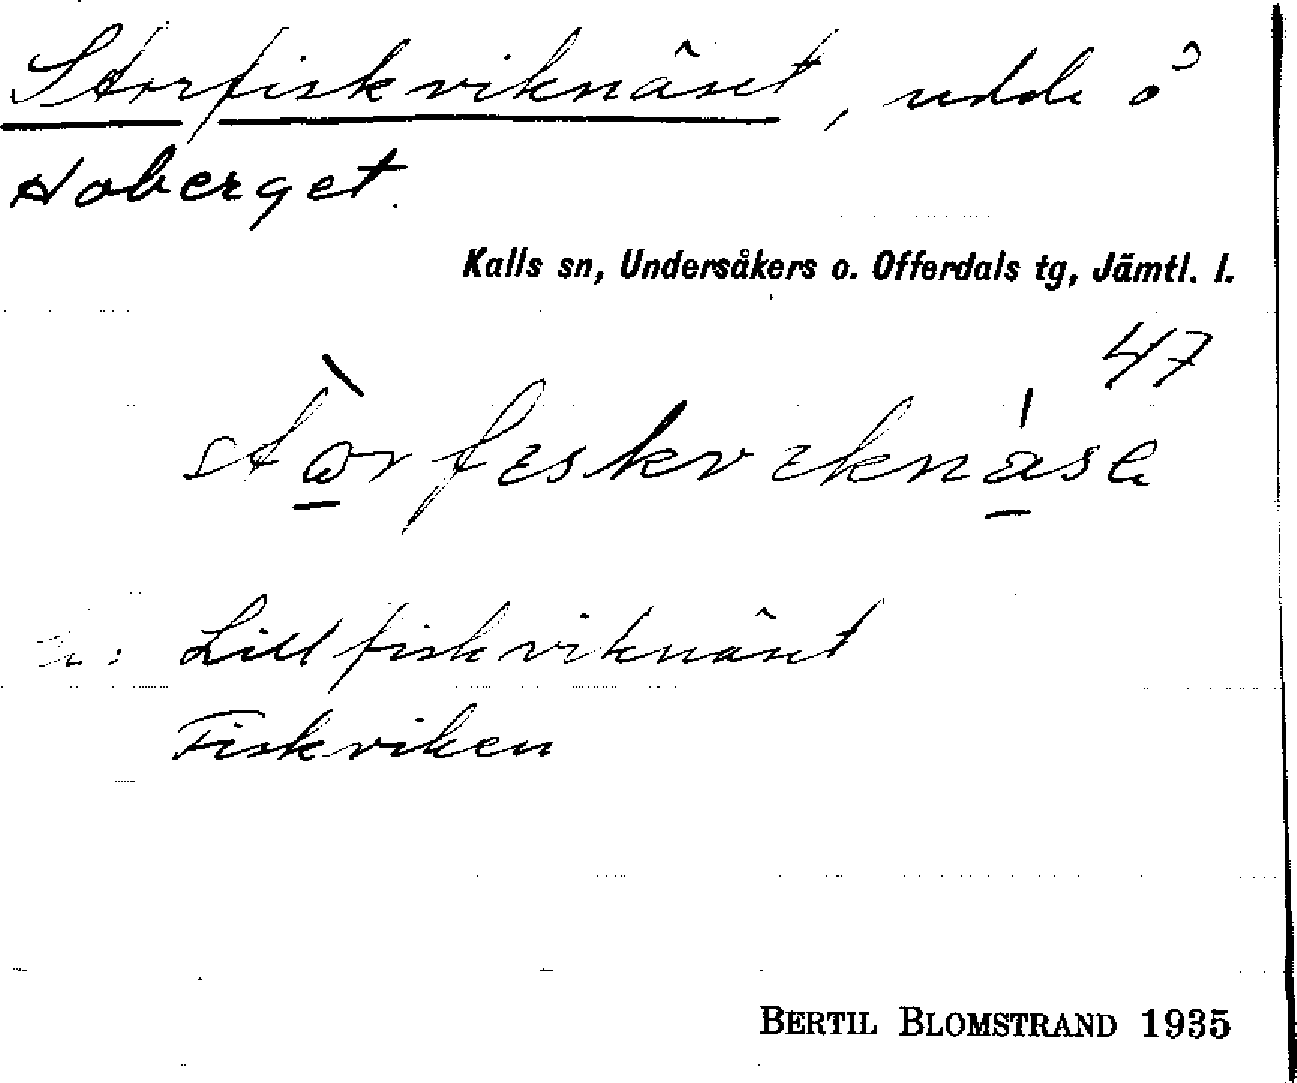 Storfiskviknäset, udde å
Hoberget.
Kalls sn, Undersåkers o. Offerdals tg, Jämtl. l.
47
stòrfiskviknáse
Lillfiskviknäset
Fiskviken
BERTIL BLOMSTRAND 1935